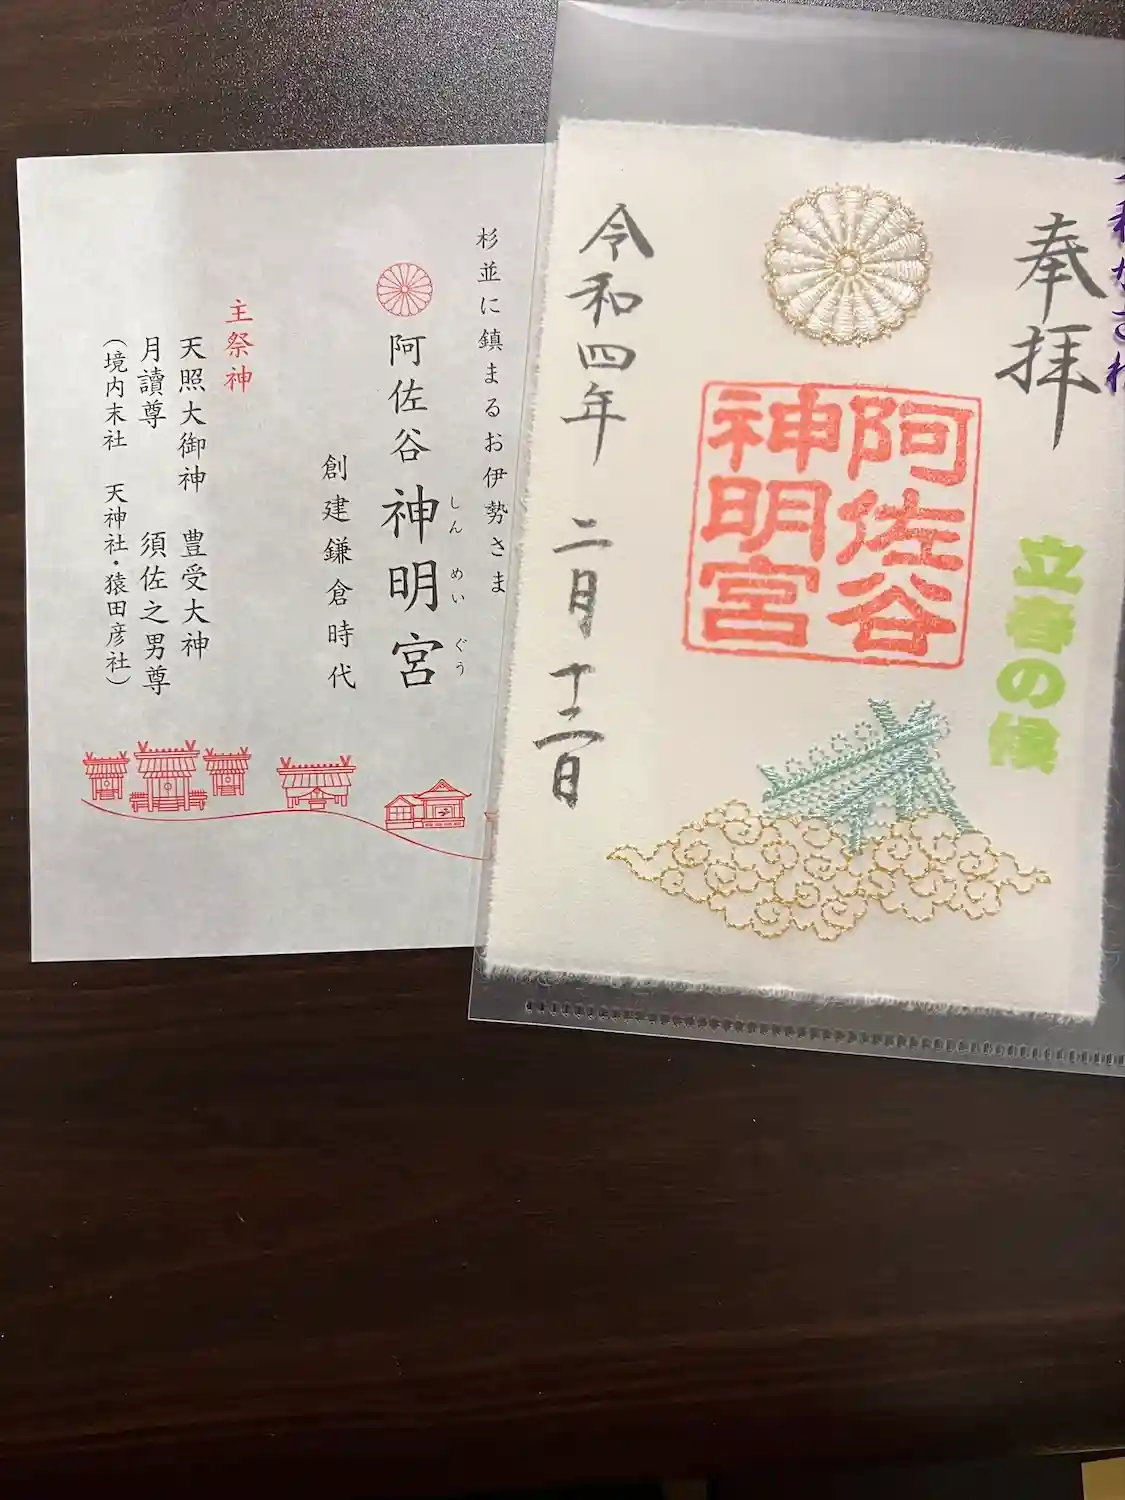 奉拝
阿佐谷
神明宮
立春の候
令和四年 二月 十二日
杉並に鎮まるお伊勢さま
阿佐谷神明宮
しんめいぐう
創建鎌倉時代
主祭神
天照大御神 豊受大神
月讀尊 須佐之男尊
(境内末社 天神社・猿田彦社)